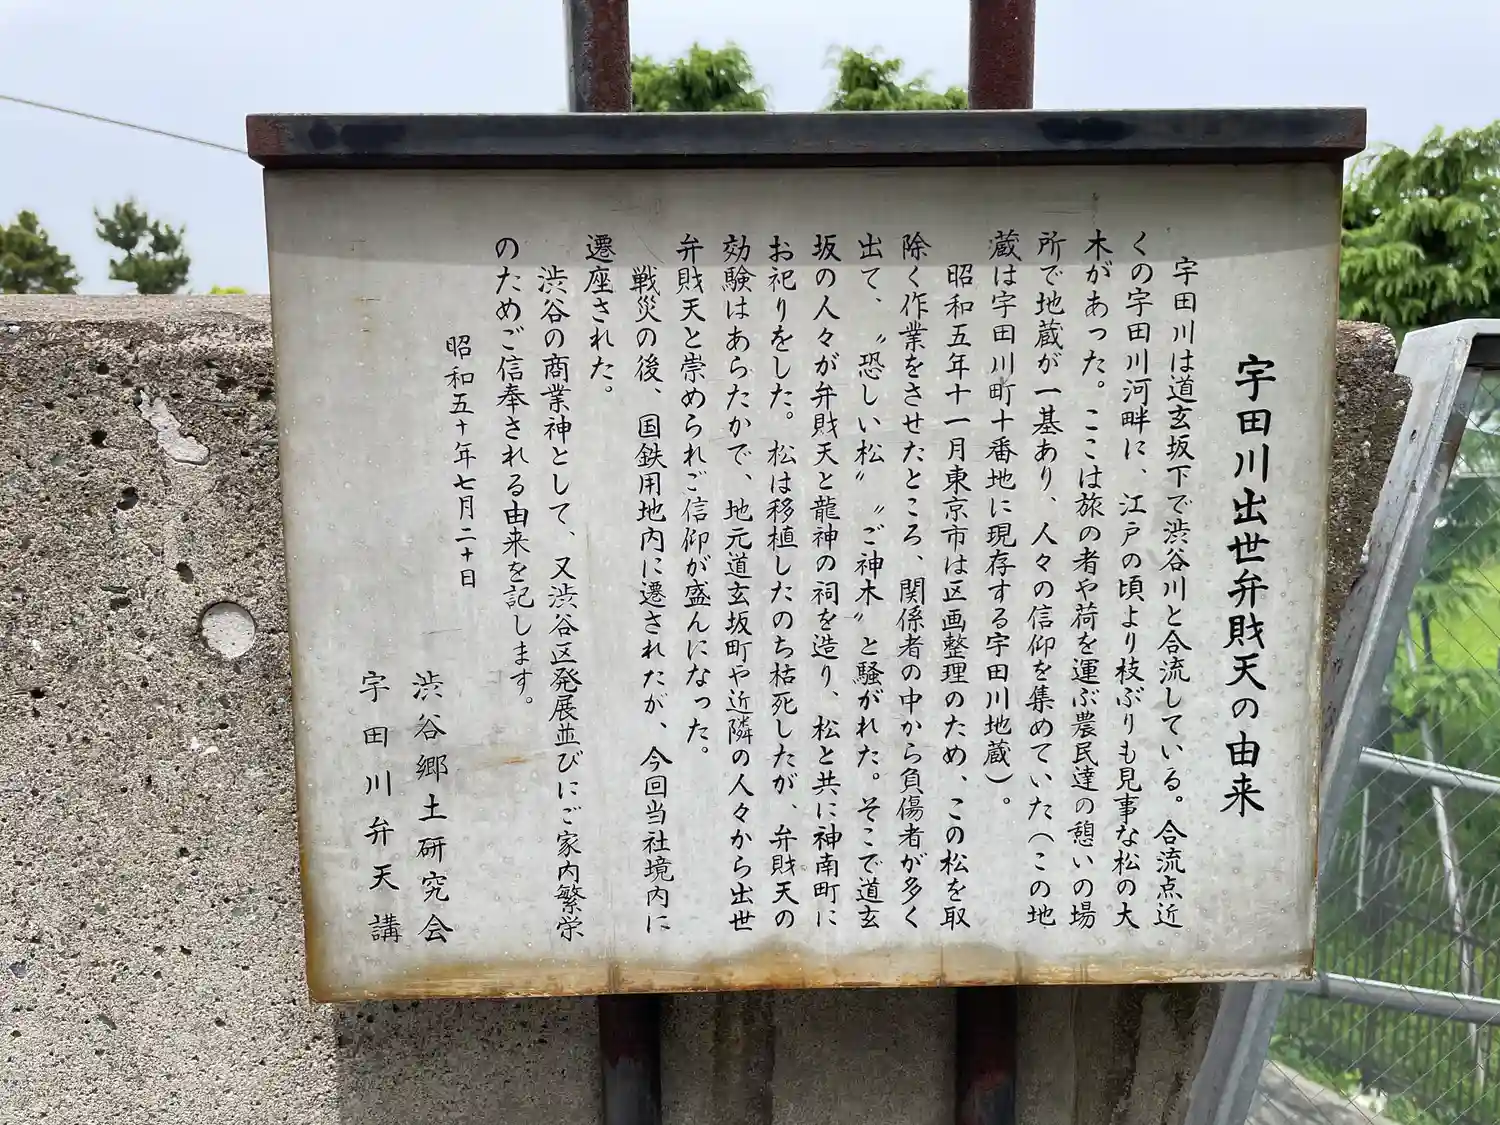 宇田川出世弁財天の由来
宇田川は道玄坂下で渋谷川と合流している。合流点近
くの宇田川河畔に、江戸の頃より枝ぶりも見事な松の大
木があった。ここは旅の者や荷を運ぶ農民達の憩いの場
所で地蔵が一基あり、人々の信仰を集めていた(この地
蔵は宇田川町十番地に現存する宇田川地蔵)。
昭和五年十一月東京市は区画整理のため、この松を取
除く作業をさせたところ、関係者の中から負傷者が多く
出て、〝恐しい松〟〝ご神木〟と騒がれた。そこで道玄
坂の人々が弁財天と龍神の祠を造り、松と共に神南町に
お祀りをした。松は移植したのち枯死したが、弁財天の
効験はあらたかで、地元道玄坂町や近隣の人々から出世
弁財天と崇められご信仰が盛んになった。
戦災の後、国鉄用地内に遷されたが、今回当社境内に
遷座された。
渋谷の商業神として、又渋谷区発展並びにご家内繁栄
のためご信奉される由来を記します。
昭和五十年七月二十日
渋谷郷土研究会
宇田川弁天講